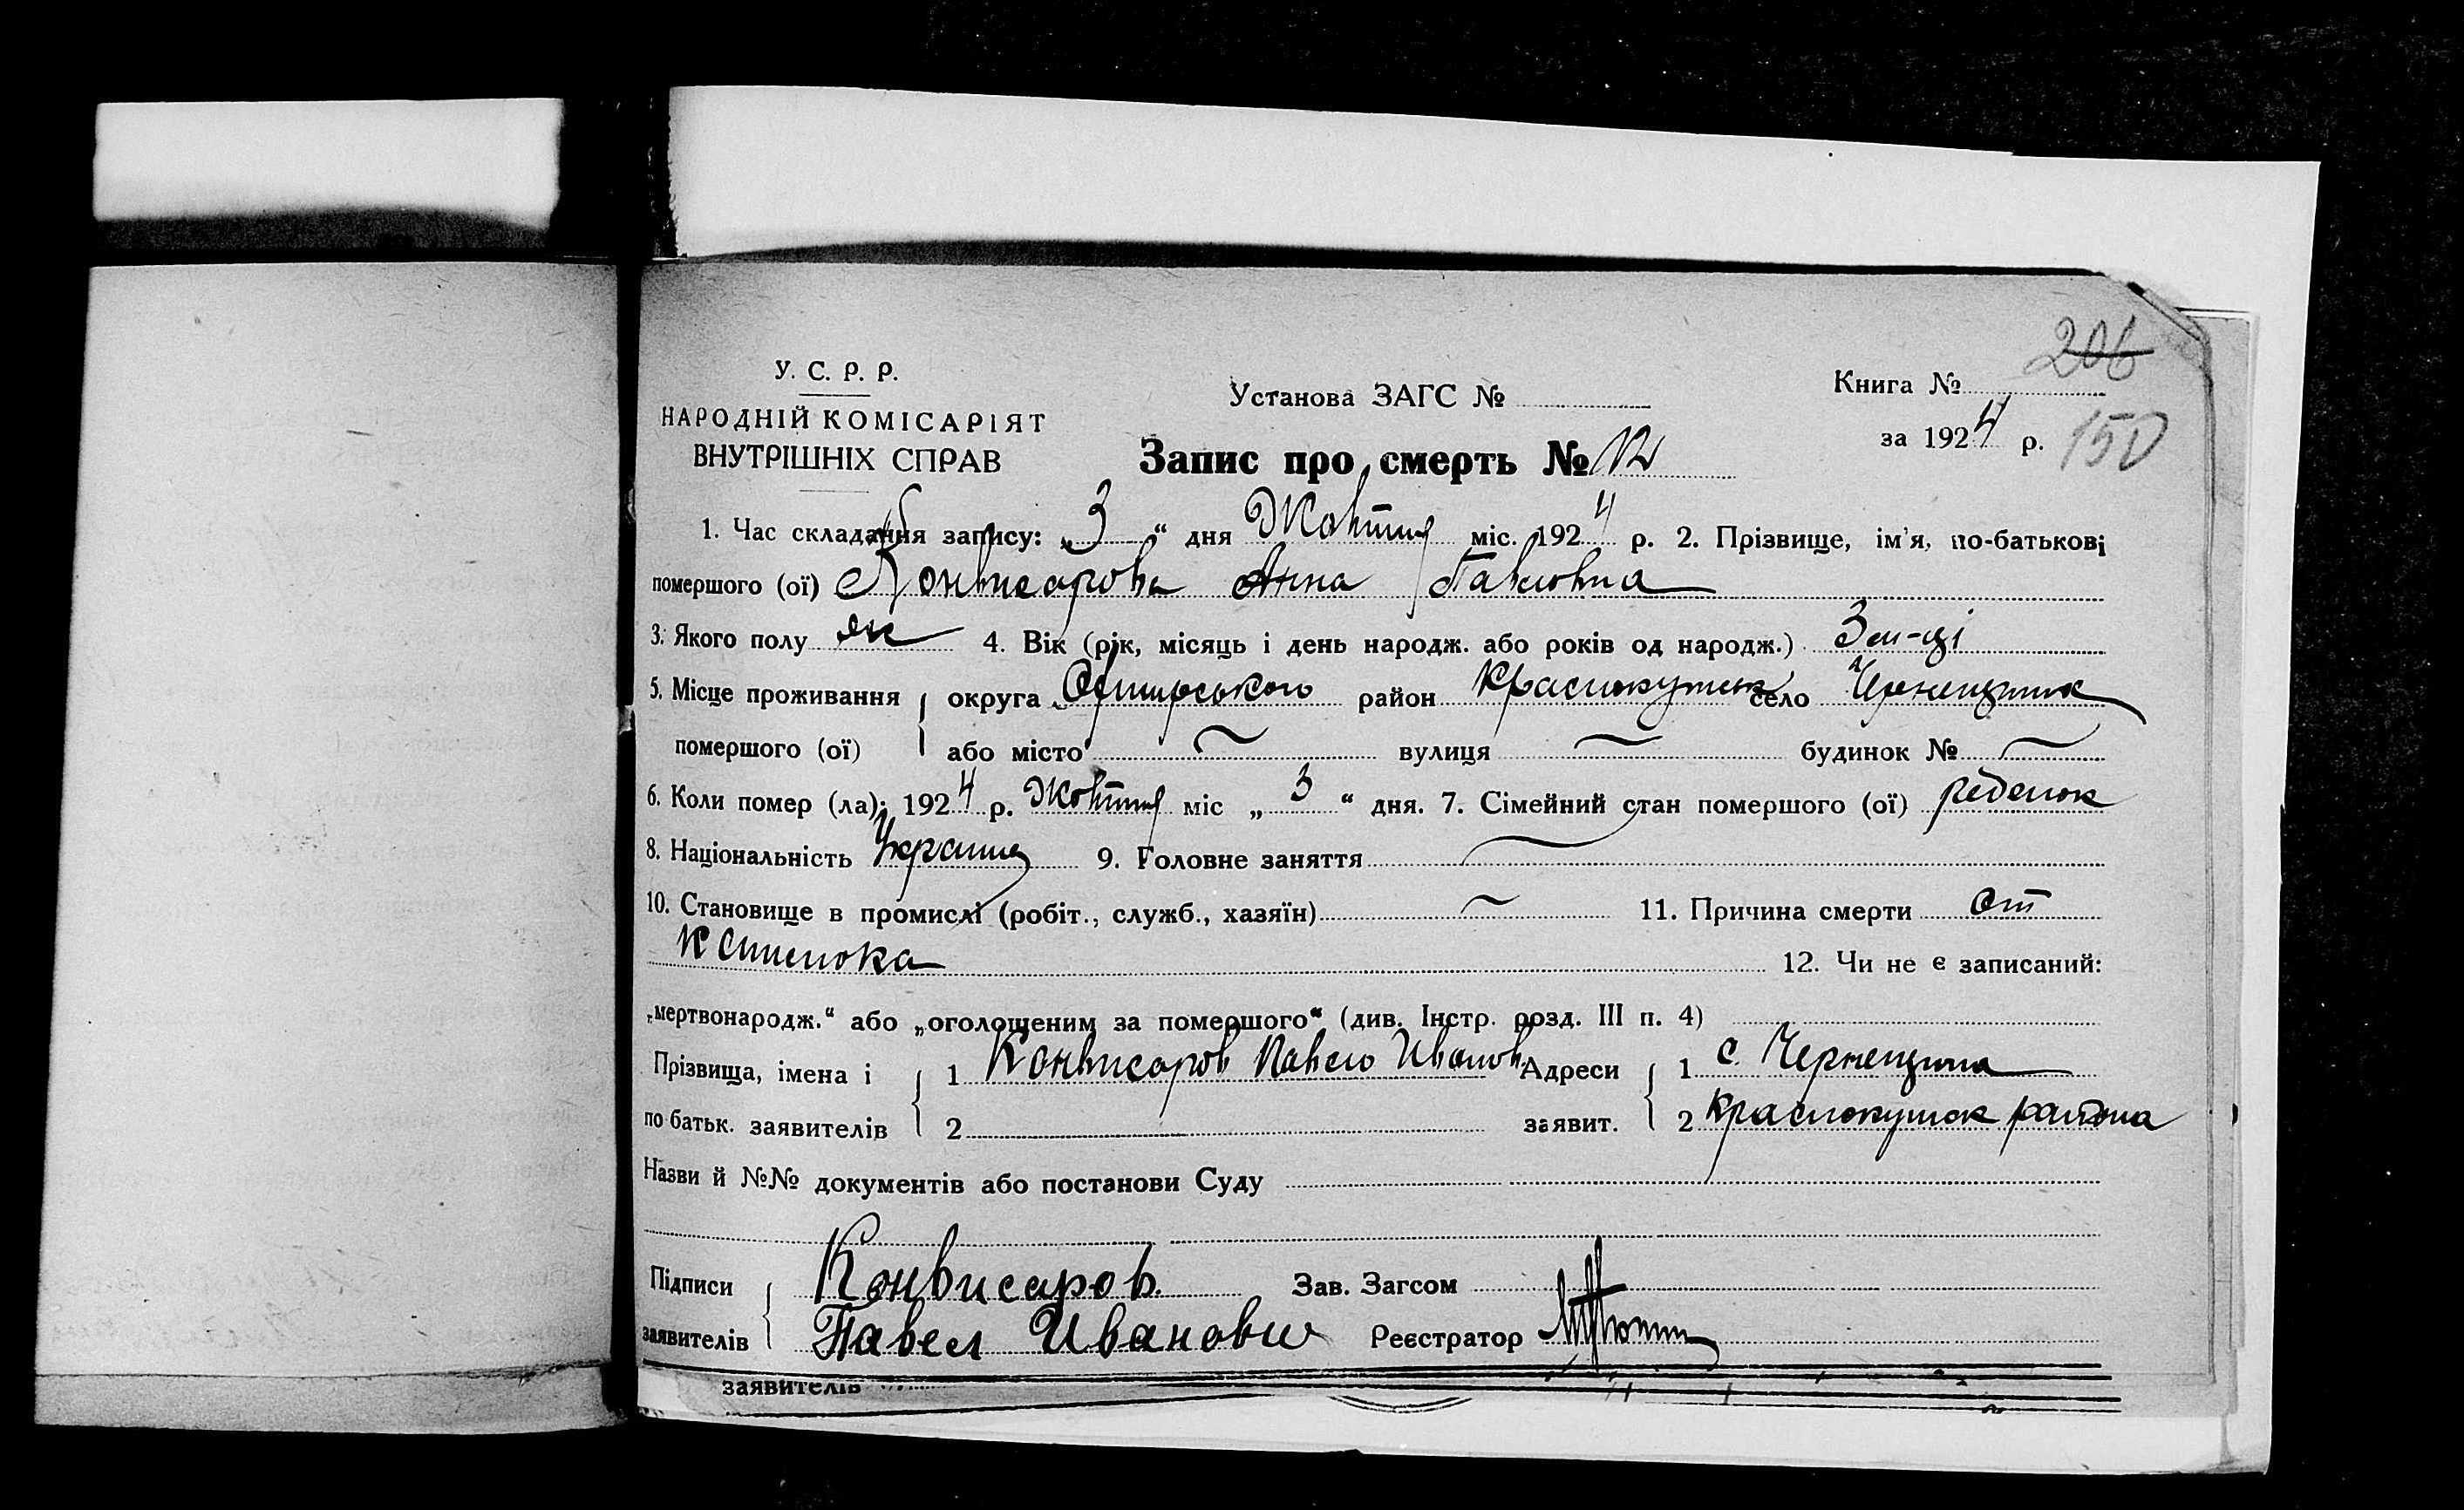 206
У. С. Р. Р.
Установа ЗАГС №
Книга №
НАРОДНІЙ КОМІСАРІЯТ
за 1924 р.
150
ВНУТРІШНІХ СПРАВ
Запис про смерть № 12
1. Час складання запису: „3“ дня міс. 1924 р. 2. Прізвище, ім'я, по-батькові
помершого (ої) Конвисарова Анна Павловна
3. Якого полу жк 4. Вік (рік, місяць і день народж. або років од народж.) 3 м-ці
5. Місце проживання округа район Краснокутск село
помершого (ої) або місто вулиця будинок №
6. Коли помер (ла): 1924 р. міс „3“ дня. 7. Сімейний стан помершого (ої) ребенок
8. Національність 9. Головне заняття
10. Становище в промислі (робіт., служб., хазяїн) 11. Причина смерти от
12. Чи не є записаний:
„мертвонародж.“ або „оголошеним за помершого“ (див. Інстр. розд. III п. 4)
Прізвища, імена і 1 Конвисаров Павло Иванов Адреси 1 с. Чернещина
по батьк. заявителів 2 заявит. 2 Краснокутск района
Назви й №№ документів або постанови Суду
Підписи Конвисаров. Зав. Загсом
заявителів Павел Иванович Реєстратор
заявителів